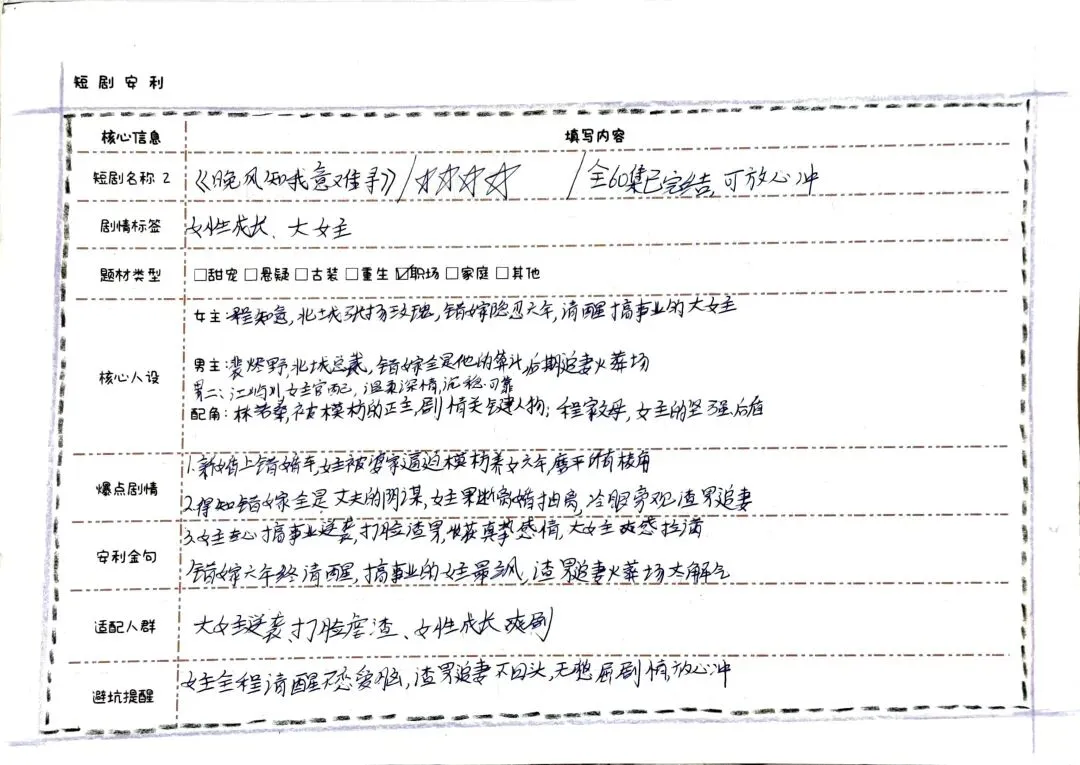 短剧安利
核心信息 填写内容
短剧名称 2 《晚风知我意难寻》/☆☆☆☆ /全60集已完结,可放心冲
剧情标签 女性成长、大女主
题材类型 □甜宠 □悬疑 □古装 □重生 ☑职场 □家庭 □其他
女主:程知意,北城张扬玫瑰,错嫁隐忍六年,清醒搞事业的大女主
核心人设
男主:裴烬野,北城总裁,错嫁全是他的算计,后期追妻火葬场
男二:江屿川,女主官配,温柔深情,沉稳可靠
配角:林若桑,被模仿的正主,剧情关键人物;程家父母,女主的坚强后盾
1.新婚上错婚车,女主被婆家逼迫模仿养女六年,磨平所有棱角
爆点剧情
2.得知错嫁全是丈夫的阴谋,女主果断离婚抽离,冷眼旁观渣男追妻
3.女主专心搞事业逆袭,打脸渣男,收获真挚感情,大女主爽感拉满
安利金句
错嫁六年终清醒,搞事业的女主最飒,渣男追妻火葬场太解气
适配人群 大女主逆袭、打脸虐渣、女性成长爽剧
避坑提醒 女主全程清醒不恋爱脑,渣男追妻不回头,无憋屈剧情,放心冲